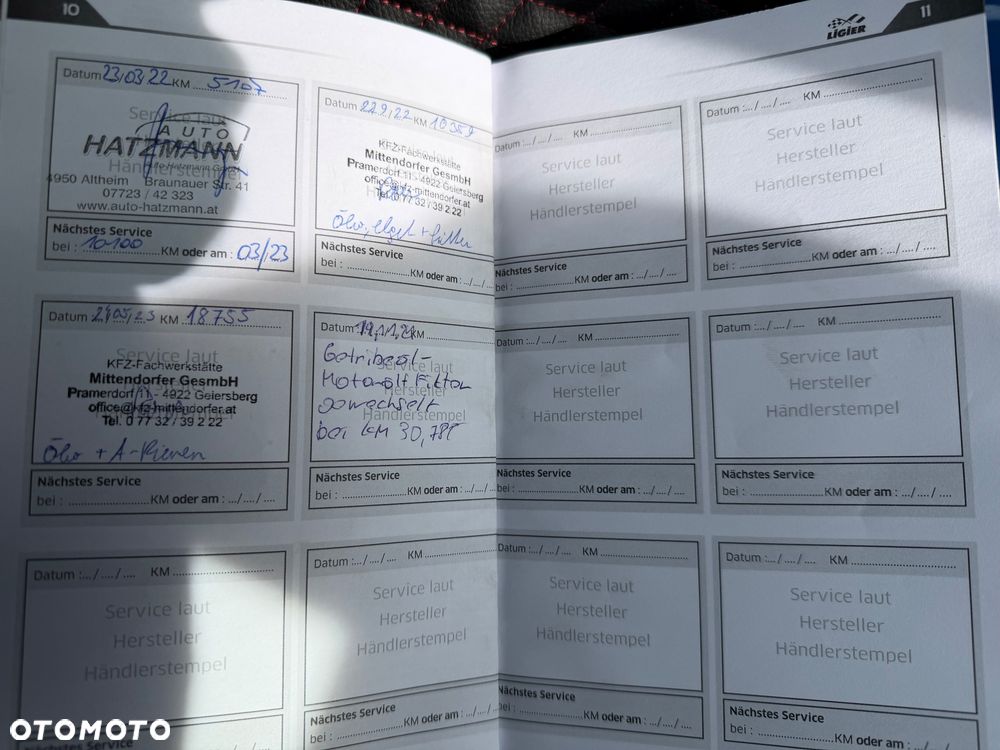 10
Datum 23/03/22 KM 5107
Service laut
AUTO
HATZMANN
Händlerstempel
4950 Altheim Braunauer Str. 41
07723 / 42 323
www.auto-hatzmann.at
Nächstes Service
bei : 10100 KM oder am : 03/23
Datum KM 10359
KFZ-Fachwerkstätte
Mittendorfer GesmbH
Pramerdorf 11 - 4922 Geiersberg
office@kfz-mittendorfer.at
Tel. 0 77 32 / 39 2 22
Nächstes Service
bei : ..................KM oder am : .../..../...
Datum KM 18755
Service laut
KFZ-Fachwerkstätte
Mittendorfer GesmbH
Pramerdorf 11 - 4922 Geiersberg
office@kfz-mittendorfer.at
Tel. 0 77 32 / 39 2 22
Nächstes Service
bei : ..................KM oder am : .../..../....
Datum KM
Service laut
Hersteller
Händlerstempel
Motorölt Filter
gewechselt
bei KM
Nächstes Service
bei : ..................KM oder am : .../..../...
Datum :.../..../.... KM ..........................
Service laut
Hersteller
Händlerstempel
Datum :.../..../.... KM ..........................
Service laut
Hersteller
Händlerstempel
Nächstes Service
bei : ..................KM oder am : .../..../...
11
LIGIER
Datum :.../..../.... KM ..........................
Service laut
Hersteller
Händlerstempel
Nächstes Service
bei : ..................KM oder am : .../..../....
Datum :.../..../.... KM ..........................
Service laut
Hersteller
Händlerstempel
Nächstes Service
bei : ..................KM oder am : .../..../....
Datum :.../..../.... KM ..........................
Service laut
Hersteller
Händlerstempel
Nächstes Service
bei : ..................KM oder am : .../..../....
Datum :.../..../.... KM ..........................
Service laut
Hersteller
Händlerstempel
Nächstes Service
bei : ..................KM oder am : .../..../....
Datum :.../..../.... KM ..........................
Service laut
Hersteller
Händlerstempel
Nächstes Service
bei : ..................KM oder am : .../..../....
Datum :.../..../.... KM ..........................
Service laut
Hersteller
Händlerstempel
Nächstes Service
bei : ..................KM oder am : .../..../....
OTOMOTO